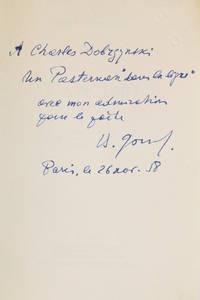 A Charles Dobrzynski
Un Pasternak "dans la ligne"
avec mon admiration
pour le poète
Paris, le 26 nov. 58